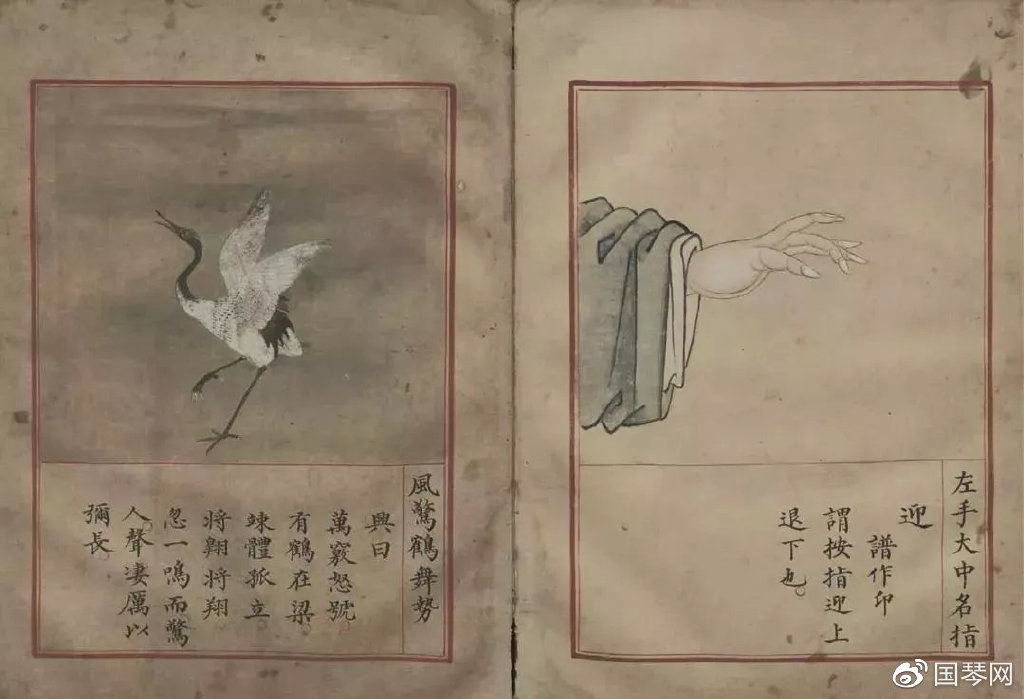 左手大中名指
迎
譜作印
謂按指迎上
退下也。
風驚鶴舞勢
興曰
萬竅怒號。
有鶴在梁。
竦體孤立
將翱將翔。
忽一鳴而驚
人。聲凄厲以
彌長。
国琴网